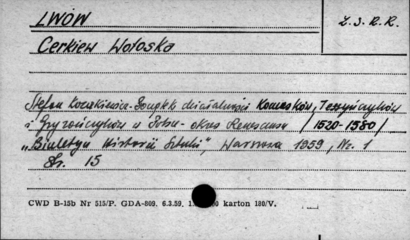 LWÓW
Z. S. R. R.
Cerkiew Wołoska
Stefan Kozakiewicz - działalność Komasków, Tessyńczyków
i w Polsce - okres Renesansu /1520-1580/
„Biuletyn Historii Sztuki", Warszawa 1959, Nr. 1
Str. 15
CWD B-15b Nr 515/P. GDA-809. 6.3.59. karton 180/V.